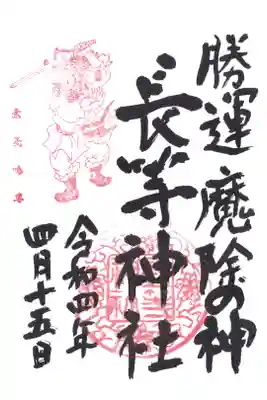 勝運 魔除の神
長等神社
令和四年
四月十五日